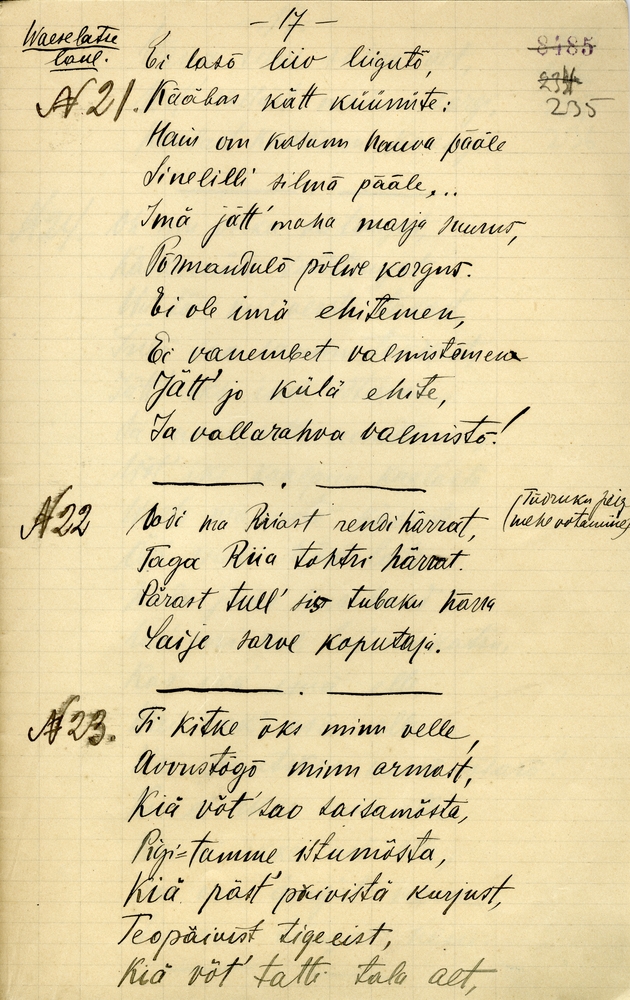 - 17 -
Waeselatse
laul.
8485
234
235
Ei lasõ liiv liigutõ,
N 21. Kääbas kätt küünüte:
Hain om kasunu hauva pääle
Sinelilli silmä pääle...
Imä jätt' maha marja suurus,
Põrmandulõ põlve korgus.
Ei ole imä ehitemen,
Ei vanembet valmistõmen
Jätt' jo külä ehite,
Ja vallarahva valmistõ!
N 22 Oodi ma Riiast rendi härrat, (Tüdruku
mehe võtamine)
Taga Riia tohtri härrat.
Pärast tull' tubaku härrä
Laije sarve koputaja.
N 23. Ti kitke õks minu velle,
Avvustõgõ minu armast,
Kiä võt' sao saisamõsta,
Pigi=tamme istumõsta,
Kiä päst' päivistä kurjust,
Teopäivist tigeeist,
Kiä võt' tatti tala alt,